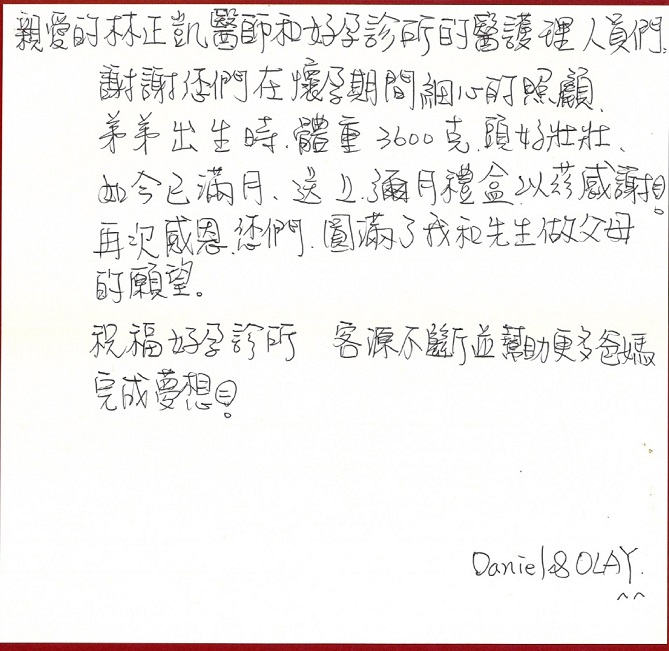 親愛的林正凱醫師和好孕診所的醫護理人員們.
謝謝您們在懷孕期間細心的照顧.
弟弟出生時.體重3600克.頭好壯壯、
如今已滿月、送上彌月禮盒.以茲感謝!
再次感恩.您們.圓滿了我和先生做父母
的願望。
祝福好孕診所 客源不斷並幫助更多爸媽
完成夢想!
Daniel & OLAY.
^^